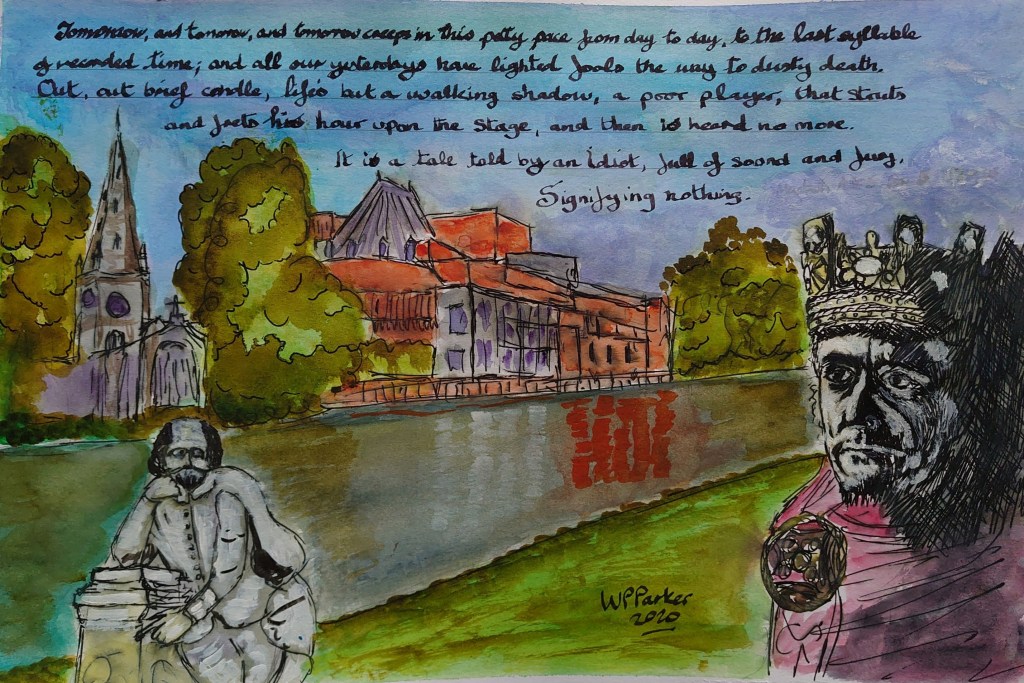 Tomorrow, and tomorrow, and tomorrow creeps in this petty pace from day to day, to the last syllable
of recorded time; and all our yesterdays have lighted fools the way to dusty death.
Out, out brief candle, life's but a walking shadow, a poor player, that struts
and frets his hour upon the stage, and then is heard no more.
It is a tale told by an idiot, full of sound and fury,
Signifying nothing.
WPParker
2020